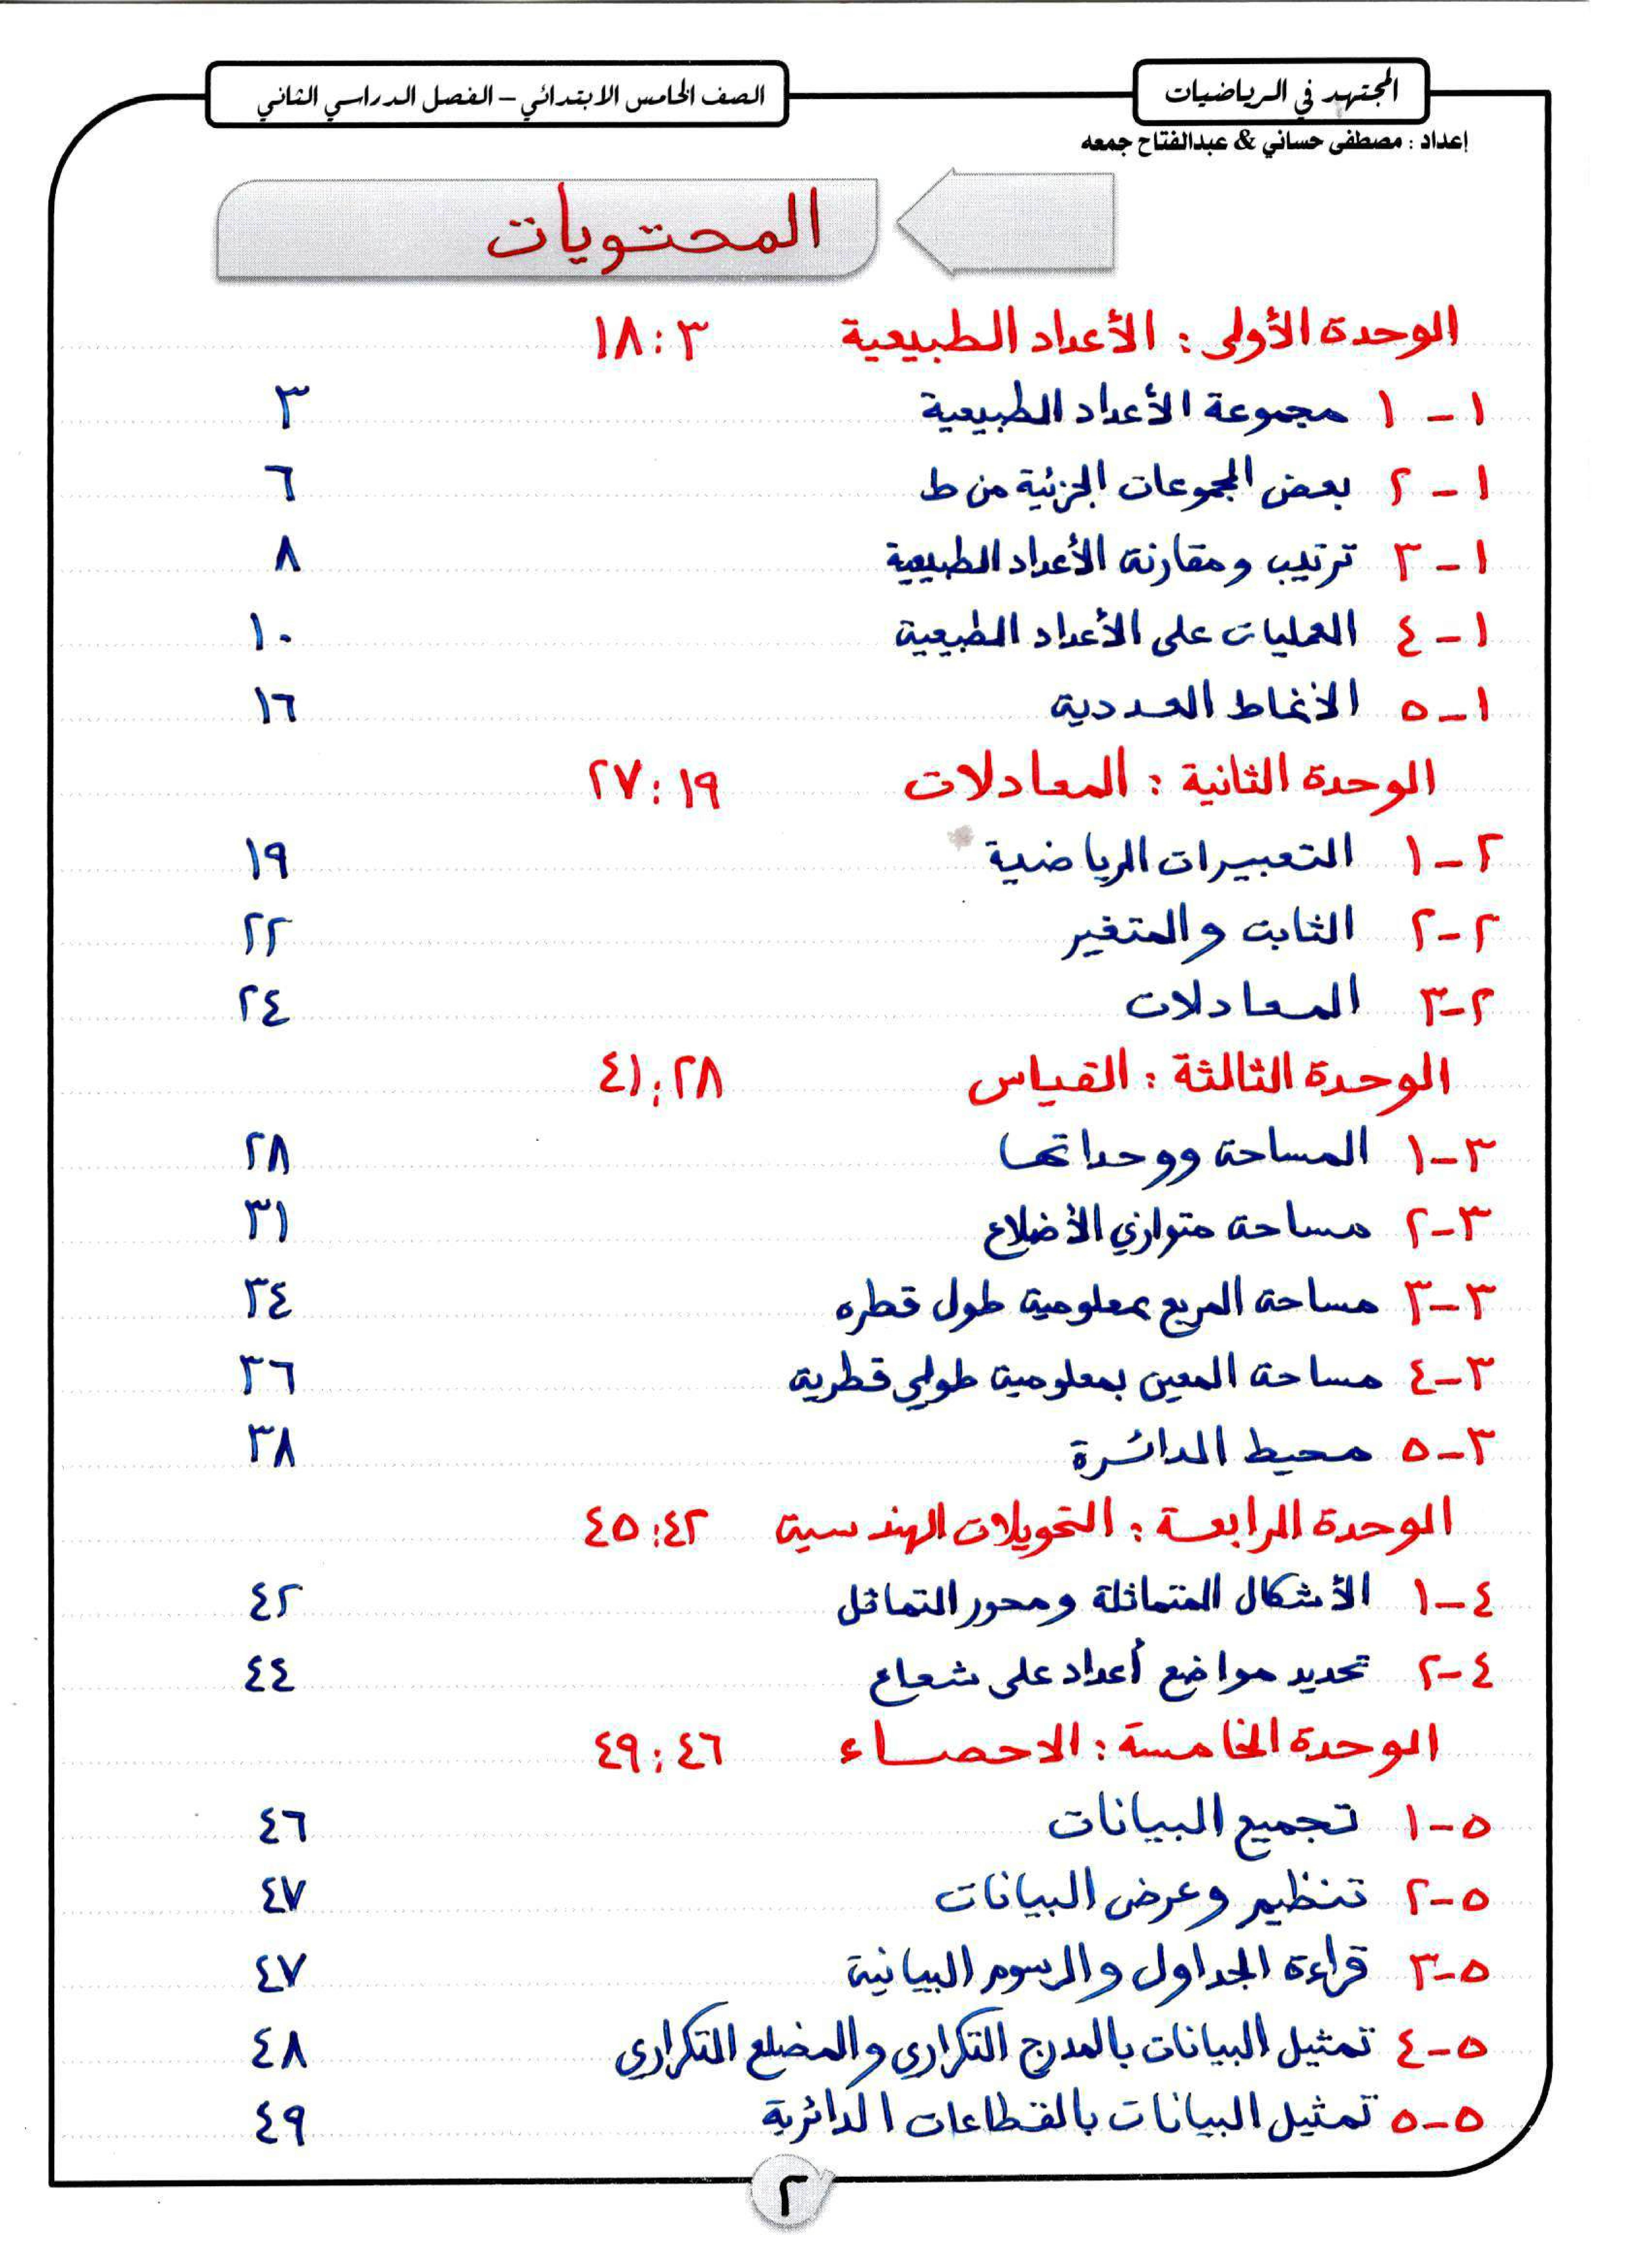 المجتهد في الرياضيات
الصف الخامس الابتدائي – الفصل الدراسي الثاني
إعداد : مصطفى حساني & عبدالفتاح جمعه
المحتويات
الوحدة الأولى : الأعداد الطبيعية ٣ : ١٨
١ - ١ مجموعة الأعداد الطبيعية ٣
١ - ٢ بعض المجموعات الجزئية من ط ٦
١ - ٣ ترتيب ومقارنة الأعداد الطبيعية ٨
١ - ٤ العمليات على الأعداد الطبيعية ١٠
١ - ٥ الأنماط العددية ١٦
الوحدة الثانية : المعادلات ١٩ : ٢٧
٢ - ١ التعبيرات الرياضية ١٩
٢ - ٢ الثابت والمتغير ٢٢
٢ - ٣ المعادلات ٢٤
الوحدة الثالثة : القياس ٢٨ : ٤١
٣ - ١ المساحة ووحداتها ٢٨
٣ - ٢ مساحة متوازي الأضلاع ٣١
٣ - ٣ مساحة المربع بمعلومية طول قطره ٣٤
٣ - ٤ مساحة المعين بمعلومية طولي قطرية ٣٦
٣ - ٥ محيط الدائرة ٣٨
الوحدة الرابعة : التحويلات الهندسية ٤٢ : ٤٥
٤ - ١ الأشكال المتماثلة ومحور التماثل ٤٢
٤ - ٢ تحديد مواضع أعداد على شعاع ٤٤
الوحدة الخامسة : الاحصاء ٤٦ : ٤٩
٥ - ١ تجميع البيانات ٤٦
٥ - ٢ تنظيم وعرض البيانات ٤٧
٥ - ٣ قراءة الجداول والرسوم البيانية ٤٧
٥ - ٤ تمثيل البيانات بالمدرج التكراري والمضلع التكراري ٤٨
٥ - ٥ تمثيل البيانات بالقطاعات الدائرية ٤٩
٢